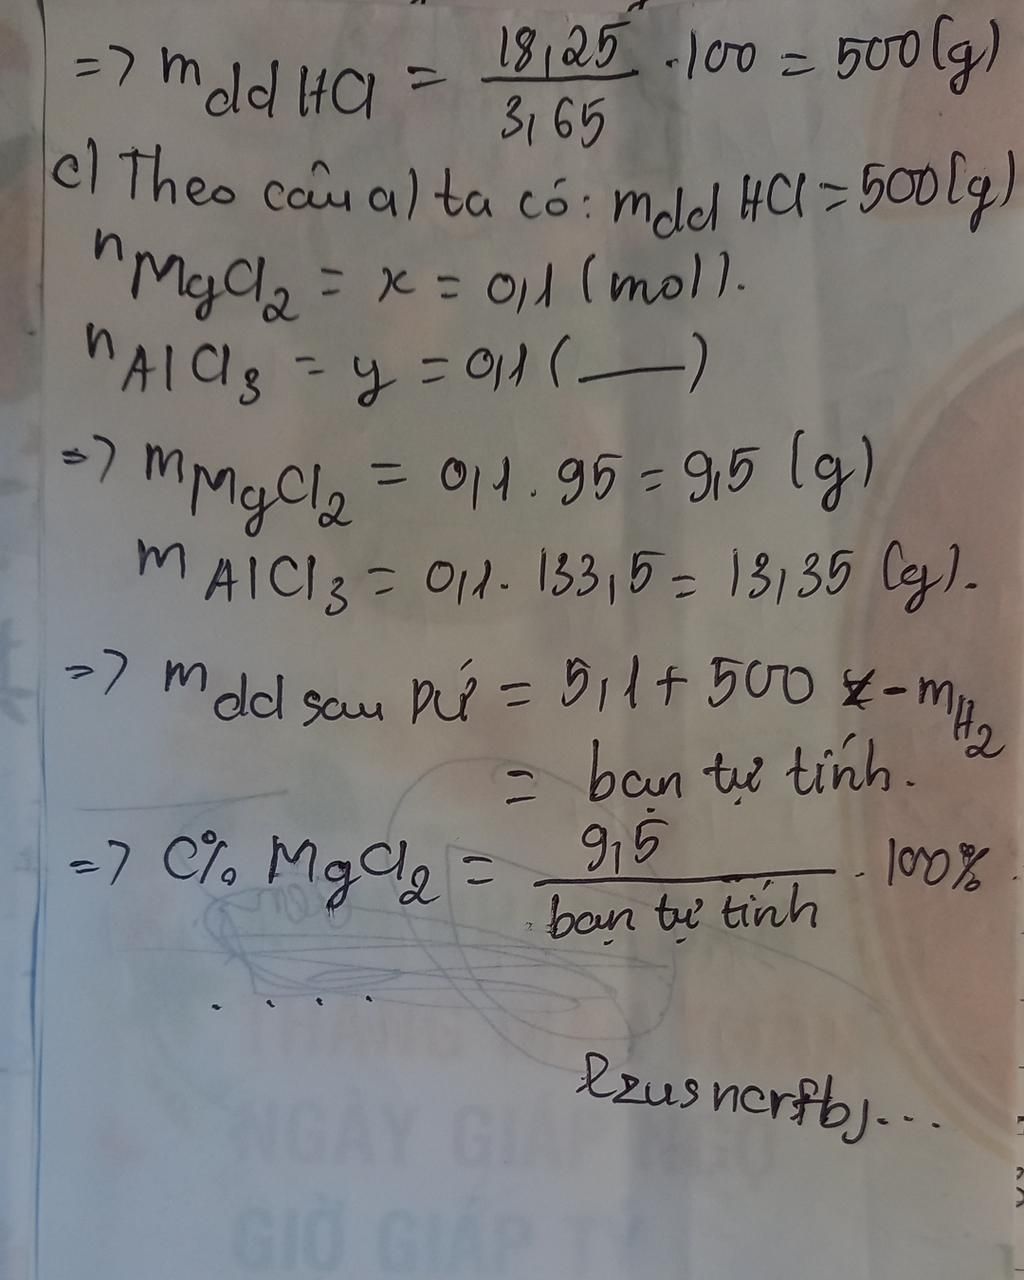 => m dd HCl = 18,25 / 3,65 . 100 = 500 (g)
c) Theo câu a) ta có: m dd HCl = 500 (g)
n MgCl2 = x = 0,1 (mol).
n AlCl3 = y = 0,1 ( — )
=> m MgCl2 = 0,1 . 95 = 9,5 (g)
m AlCl3 = 0,1 . 133,5 = 13,35 (g).
=> m dd sau pứ = 5,1 + 500 - m H2
= bạn tự tính.
=> C% MgCl2 = 9,5 / bạn tự tính . 100%
. . . .
lzusncrfbj...
NGÀY GIÁP NGỌ
GIỜ GIÁP TÝ